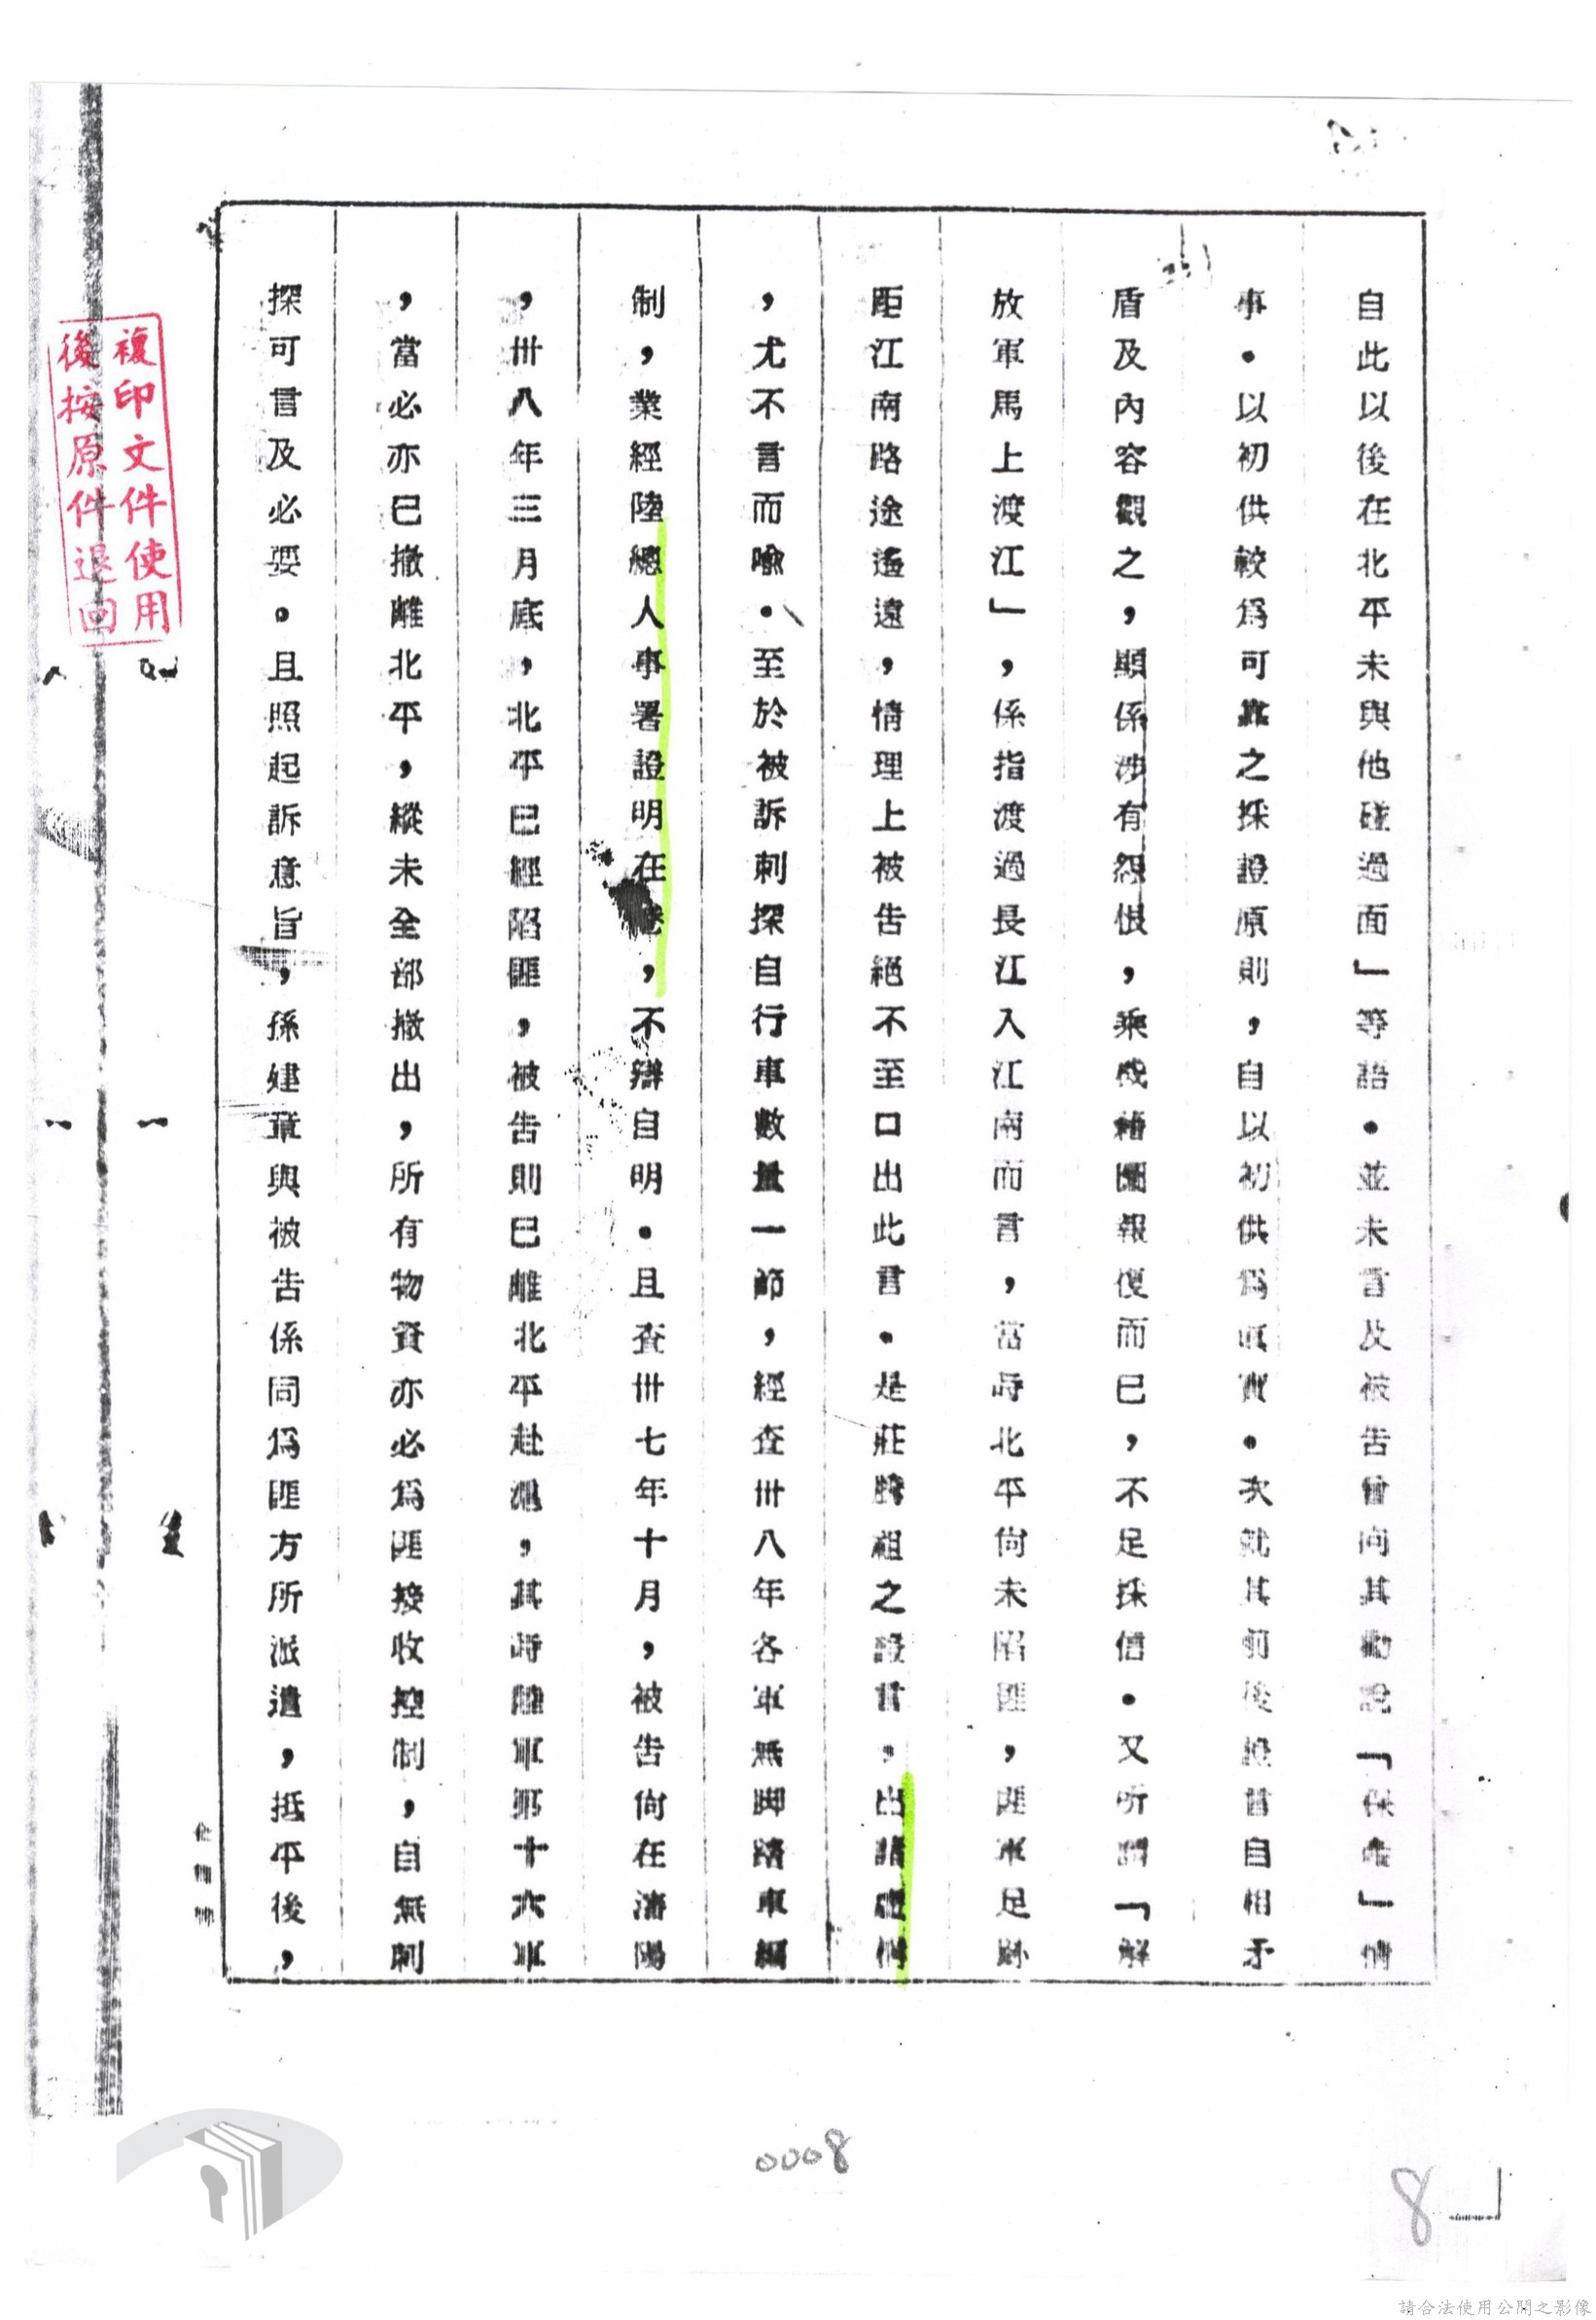 自此以後在北平未與他碰過面」等語。並未言及被告曾向其勸說「保命」情
事。以初供較為可靠之採證原則,自以初供為真實。次就其前後證言自相矛
盾及內容觀之,顯係涉有怨恨,乘機藉圖報復而已,不足採信。又所謂「解
放軍馬上渡江」,係指渡過長江入江南而言,當時北平尚未陷匪,匪軍足跡
距江南路途遙遠,情理上被告絕不至口出此言。是莊勝祖之證言,出諸虛構
,尤不言而喻。至於被訴刺探自行車數量一節,經查卅八年各軍無脚踏車編
制,業經陸總人事署證明在卷,不辯自明。且查卅七年十月,被告尚在瀋陽
,卅八年三月底,北平已經陷匪,被告則已離北平赴滬,其時陸軍第十六軍
,當必亦已撤離北平,縱未全部撤出,所有物資亦必為匪接收控制,自無刺
探可言及必要。且照起訴意旨,孫建章與被告係同為匪方所派遣,抵平後,
複印文件使用
後按原件退回
0008
8
請合法使用公開之影像